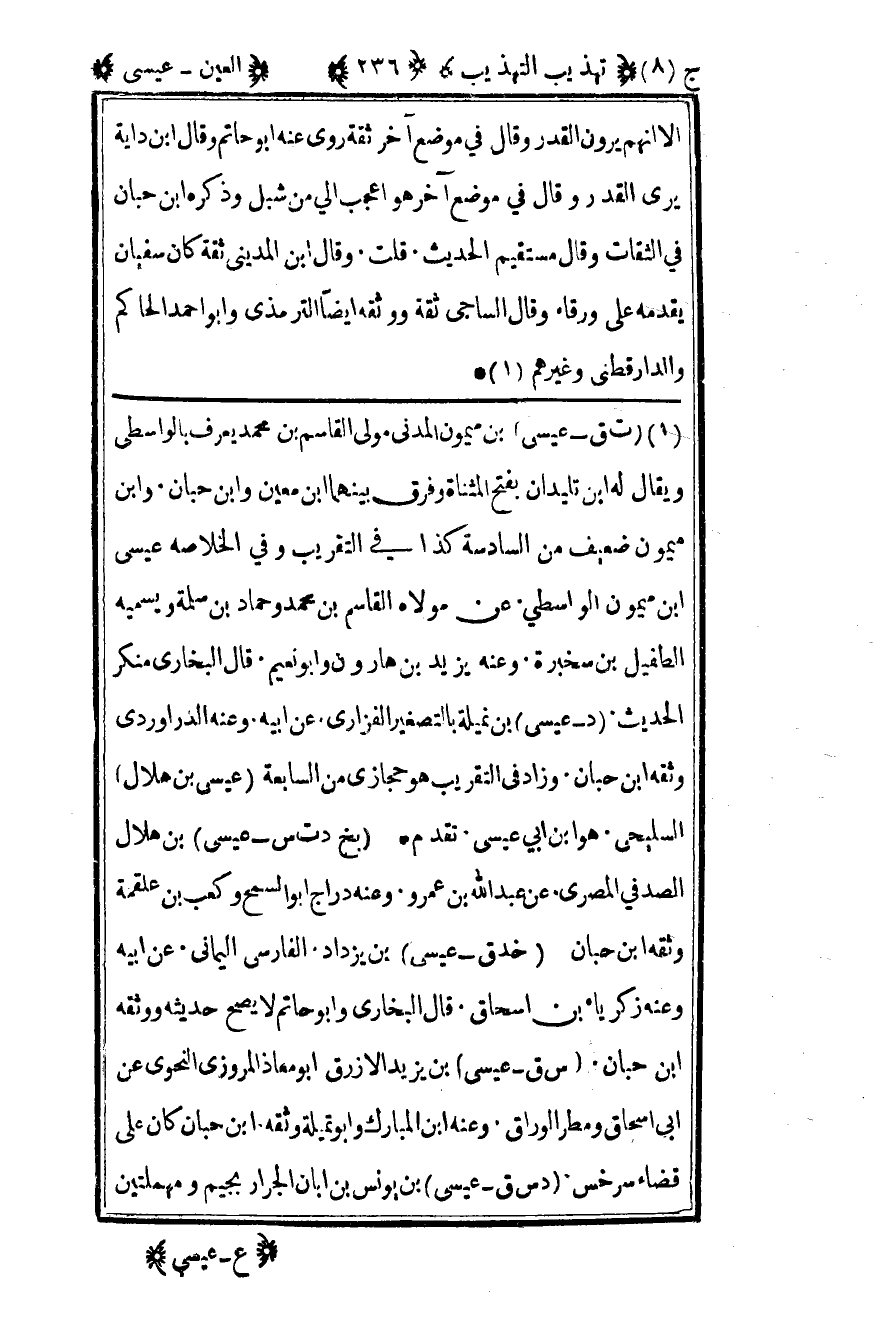 ج (٨) ﴿ تهذيب التهذيب ﴾ ﴿ ٢٣٦ ﴾ ﴿ العين ـ عيسى ﴾
الا انهم يرون القدر وقال في موضع آخر ثقة روى عنه ابو حاتم وقال ابن داية
يرى القدر و قال في موضع آخر هو اعجب الي من شبل وذكره ابن حبان
في الثقات وقال مستقيم الحديث · قلت · وقال ابن المديني ثقة كان سفيان
يقدمه على ورقاء وقال الساجي ثقة ووثقه ايضاً الترمذى وابو احمد الحاكم
والدارقطنى وغيرهم (١) ●
(١) (ت ق ـ عيسى) بن ميمون المدنى مولى القاسم بن محمد يعرف بالواسطى
ويقال له ابن تليدان بفتح المثناة وفرق بينهما ابن معين وابن حبان · وابن
ميمون ضعيف من السادسة كذا في التقريب و في الخلاصه عيسى
ابن ميمون الواسطي · عن مولاه القاسم بن محمد وحماد بن سلمة ويسميه
الطفيل بن سخبرة · وعنه يزيد بن هارون وابو نعيم · قال البخارى منكر
الحديث · (د ـ عيسى) بن نميلة بالتصغير الفزارى · عن ابيه · وعنه الدراوردى
وثقه ابن حبان · وزاد فى التقريب هو حجازى من السابعة (عيسى بن هلال)
السليحى · هو ابن ابي عيسى · تقدم ● (بخ د ت س ـ عيسى) بن هلال
الصدفي المصرى · عن عبد الله بن عمرو · وعنه دراج ابو السمح وكعب بن علقمة
وثقه ابن حبان (خد ق ـ عيسى) بن يزداد · الفارسى اليمانى · عن ابيه
وعنه زكرياء بن اسحاق · قال البخارى وابو حاتم لا يصح حديثه ووثقه
ابن حبان · (س ق ـ عيسى) بن يزيد الازرق ابو معاذ المروزى النحوى عن
ابي اسحاق ومطر الوراق · وعنه ابن المبارك وابو تميلة وثقه · ابن حبان كان على
قضاء سرخس · (د س ق ـ عيسى) بن يونس بن ابان الجرار بجيم و مهملتين
﴿ ع ـ عيسى ﴾